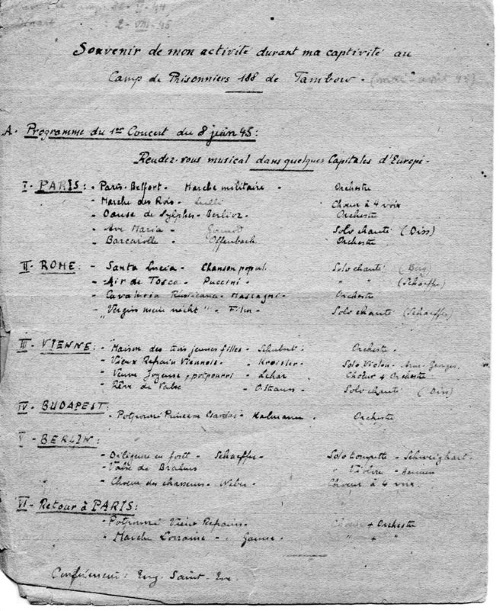 2-VIII-45
Souvenir de mon activité durant ma captivité au
Camp de Prisonniers 188 de Tambow.
A. Programme du 1er Concert du 8 juin 45:
Rendez-vous musical dans quelques Capitales d'Europe.
I - PARIS: - Paris-Belfort - Marche militaire - Orchestre
- Marche des Rois - Lulli Chœur à 4 voix
- Danse de Sylphes - Berlioz - Orchestre
- Ave Maria - Gounod Solo chanté (Diss)
- Barcarolle - Offenbach Orchestre
II - ROME: - Santa Lucia - Chanson popul. Solo chanté
- Air de Tosca - Puccini - " " (Schaeffer)
- Cavaleria Rusticana - Mascagni - Orchestre
- "Vergiss mein nicht" - Film - Solo chanté (Schaeffer)
III - VIENNE: - Maison des trois jeunes filles - Schubert - Orchestre -
- Vieux Refrain Viennois - Kreisler - Solo Violon -
- Veuve Joyeuse potpourri - Lehar Chœur + Orchestre -
- Rêve de Valse - O. Straus - Solo chanté (Diss)
IV - BUDAPEST:
- Potpourri Princesse Czardas - Kalmann - Orchestre
V - BERLIN:
- en forêt - Schaeffer - Solo trompette - Schweighart
- Valse de Brahms
- Chœur des chasseurs - Weber - Chœur à 4 voix
VI - Retour à PARIS:
- Potpourri Vieux Refrains - + Orchestre
- Marche Lorraine - Ganne - " "
Conférencier: Eug. Saint-Eve